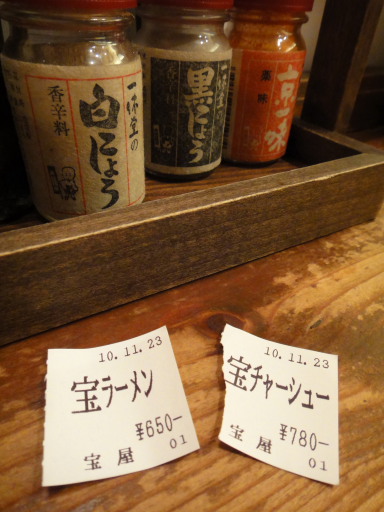 一味堂の
白こしょう
香辛料
黒こしょう
京一味
薬味
10.11.23
宝ラーメン
¥650-
宝屋 01
10.11.23
宝チャーシュー
¥780-
宝屋 01